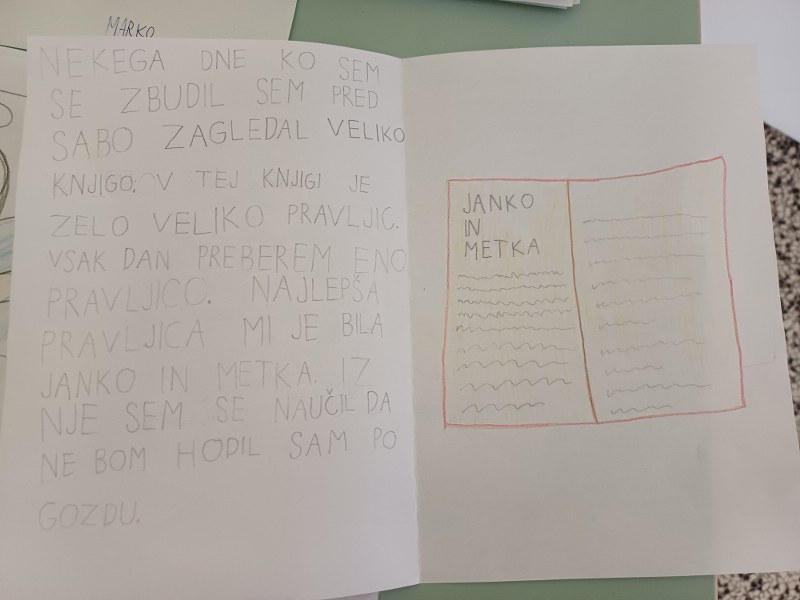 MARKO
NEKEGA DNE KO SEM
SE ZBUDIL SEM PRED
SABO ZAGLEDAL VELIKO
KNJIGO. V TEJ KNJIGI JE
ZELO VELIKO PRAVLJIC.
VSAK DAN PREBEREM ENO
PRAVLJICO. NAJLEPŠA
PRAVLJICA MI JE BILA
JANKO IN METKA. IZ
NJE SEM SE NAUČIL DA
NE BOM HODIL SAM PO
GOZDU.
JANKO
IN
METKA